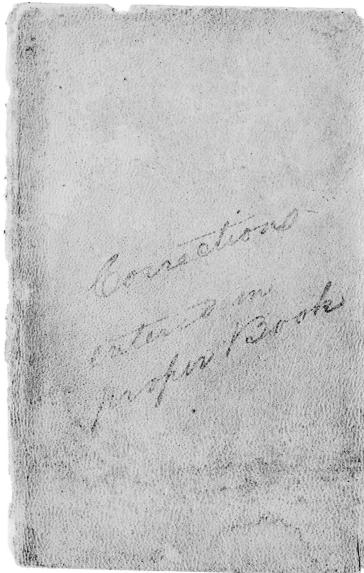 Corrections
entered in
proper Book